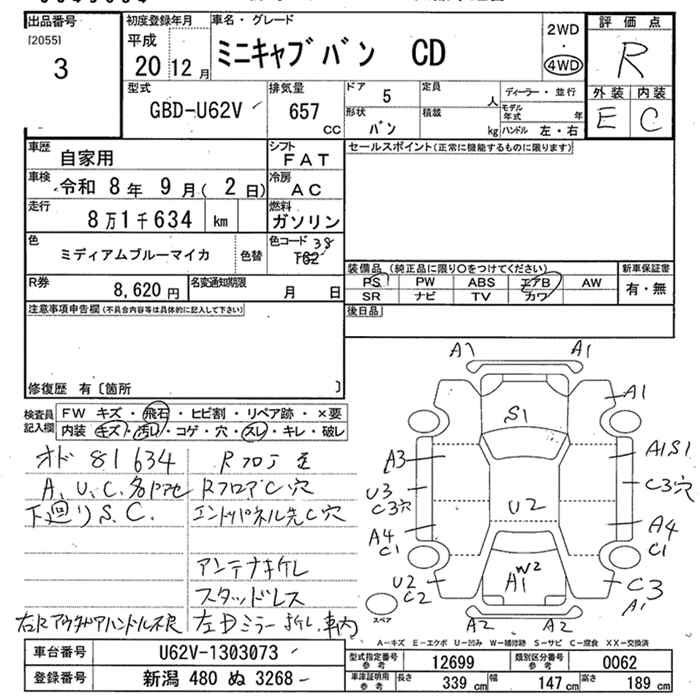 出品番号 初度登録年月 車名・グレード 2WD 評価点
[2055] 平成 ミニキャブバン CD ・ R
3 20 12月 4WD
型式 排気量 ドア 5 定員 人 ディーラー・並行 外装 内装
GBD-U62V 657 CC 形状 バン 積載 kg モデル年式 年 E C
ハンドル 左・右
車歴 自家用 シフト FAT セールスポイント(正常に機能するものに限ります)
車検 令和 8年 9月(2日) 冷房 AC
走行 8万1千634 km 燃料 ガソリン
色 ミディアムブルーマイカ 色替 色コード 38 T62
装備品(純正品に限り○をつけてください) 新車保証書
R券 8,620円 名変通知期限 月 日 PS PW ABS エアB AW 有・無
SR ナビ TV カワ
注意事項申告欄(不具合内容等は具体的に記入して下さい) 後日品
修復歴 有〔箇所 〕
検査員記入欄 FW キズ・飛石・ヒビ割・リペア跡・×要
内装 キズ・汚レ・コゲ・穴・スレ・キレ・破レ
オド 81634 Rフロア
A、U、C、各ドアセ RフロアC穴
下廻りS.C. エンドパネル先C穴
アンテナキレ
スタッドレス
右Rアウタドアハンドル不良 左Dミラー 車内
A1 A1
A1
S1
A3 A1S1
U3 C3穴
C3穴 U2
A4 A4
C1 C1
U2 A1 W2 C3
C2 A1
スペア
A2 A2
A-キズ E-エクボ U-凹み W-補修跡 S-サビ C-腐食 XX-交換済
車台番号 U62V-1303073 型式指定番号 参考 12699 類別区分番号 参考 0062
登録番号 新潟 480 ぬ 3268 車庫証明用 参考 長さ 339 cm 幅 147 cm 高さ 189 cm